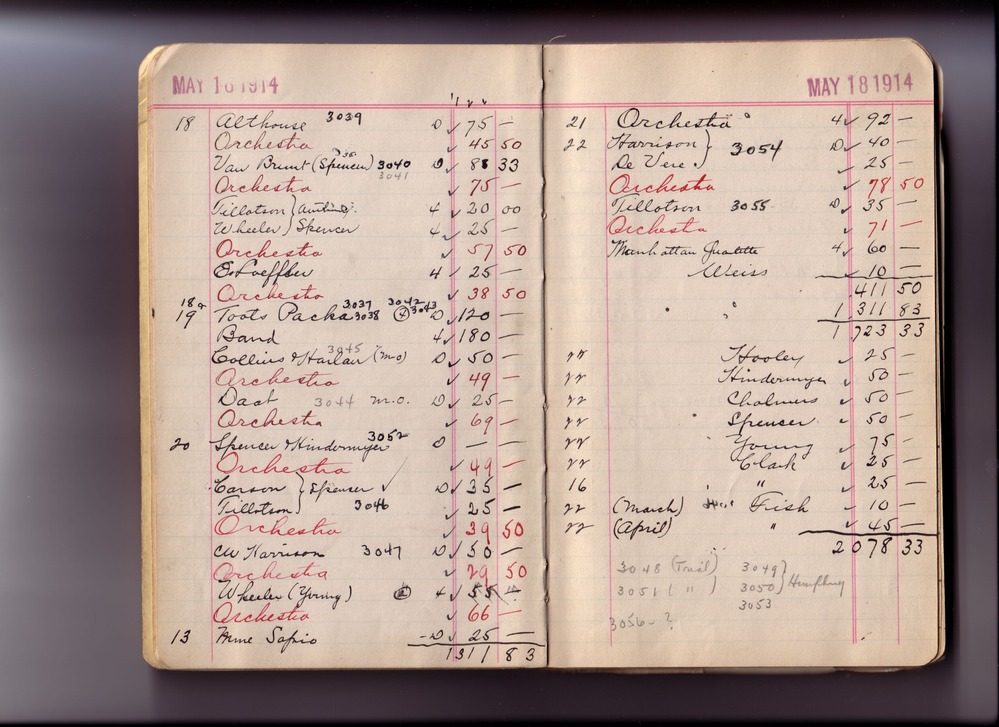 MAY 18 1914
18 Althouse 3039 D ✓ 75 —
Orchestra ✓ 45 50
Van Brunt (Spencer) 3040 D ✓ 88 33
3041
Orchestra ✓ 75 —
Tillotson } 4 ✓ 20 00
Wheeler } Spencer 4 ✓ 25 —
Orchestra ✓ 57 50
E. Loeffler 4 ✓ 25 —
Orchestra ✓ 38 50
18 & 3037 3042
19 Toots Packa 3038 3043 D ✓ 120 —
Band 4 ✓ 180 —
3045
Collins & Harlan (m.o) D ✓ 50 —
Orchestra ✓ 49 —
Daab 3044 m.o. D ✓ 25 —
Orchestra ✓ 69 —
3052
20 Spencer & Hindermyer D — —
Orchestra ✓ 49 —
Carson } Spencer ✓ D ✓ 35 —
Tillotson } 3046 ✓ 25 —
Orchestra ✓ 39 50
CW Harrison 3047 D ✓ 50 —
Orchestra ✓ 29 50
Wheeler (Young) 4 ✓ 55 —
Orchestra ✓ 66 —
13 Mme Sapio D ✓ 25 —
1311 83
MAY 18 1914
21 Orchestra 4 ✓ 92 —
22 Harrison } 3054 D ✓ 40 —
De Vere } ✓ 25 —
Orchestra ✓ 78 50
Tillotson 3055 D ✓ 35 —
Orchestra ✓ 71 —
Manhattan Quartette 4 ✓ 60 —
Weiss ✓ 10 —
411 50
" " 1 311 83
1 723 33
22 Hooley ✓ 25 —
22 Hindermyer ✓ 50 —
22 Chalmers ✓ 50 —
22 Spencer ✓ 50 —
22 Young ✓ 75 —
22 Clark ✓ 25 —
16 " ✓ 25 —
22 (March) Fish ✓ 10 —
22 (April) " ✓ 45 —
2078 33
3048 (Trial) 3049 }
3051 ( " ) 3050 } Humphrey
3053
3056 - ?